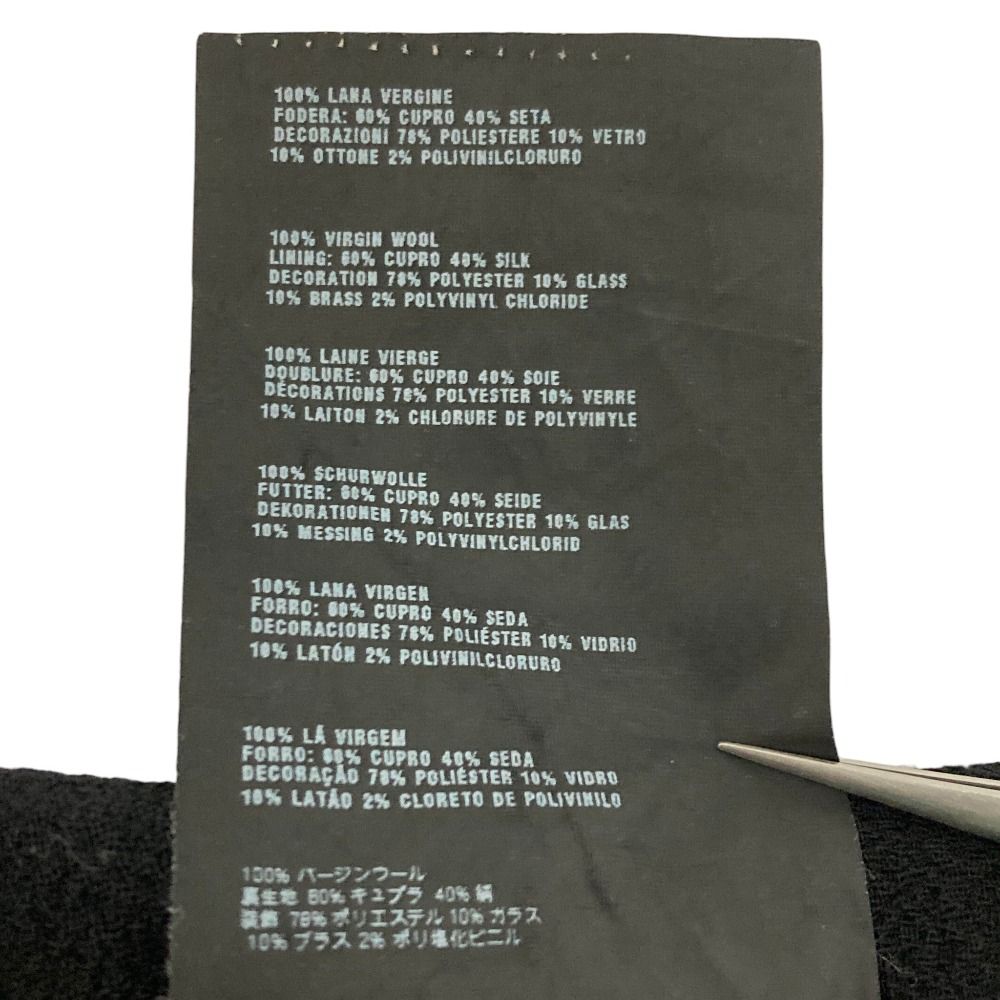 100% LANA VERGINE
FODERA: 60% CUPRO 40% SETA
DECORAZIONI 78% POLIESTERE 10% VETRO
10% OTTONE 2% POLIVINILCLORURO
100% VIRGIN WOOL
LINING: 60% CUPRO 40% SILK
DECORATION 78% POLYESTER 10% GLASS
10% BRASS 2% POLYVINYL CHLORIDE
100% LAINE VIERGE
DOUBLURE: 60% CUPRO 40% SOIE
DÉCORATIONS 78% POLYESTER 10% VERRE
10% LAITON 2% CHLORURE DE POLYVINYLE
100% SCHURWOLLE
FUTTER: 60% CUPRO 40% SEIDE
DEKORATIONEN 78% POLYESTER 10% GLAS
10% MESSING 2% POLYVINYLCHLORID
100% LANA VIRGEN
FORRO: 60% CUPRO 40% SEDA
DECORACIONES 78% POLIÉSTER 10% VIDRIO
10% LATÓN 2% POLIVINILCLORURO
100% LÃ VIRGEM
FORRO: 60% CUPRO 40% SEDA
DECORAÇÃO 78% POLIÉSTER 10% VIDRO
10% LATÃO 2% CLORETO DE POLIVINILO
100% バージンウール
裏生地 60% キュプラ 40% 絹
装飾 78% ポリエステル 10% ガラス
10% ブラス 2% ポリ塩化ビニル